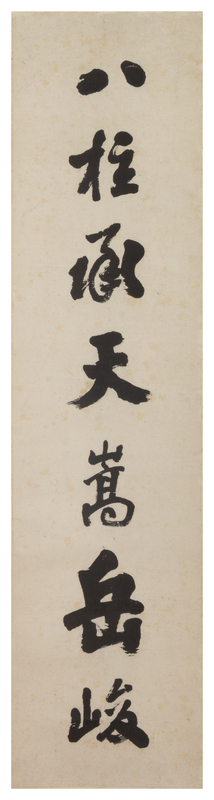 八柱承天嵩岳峻